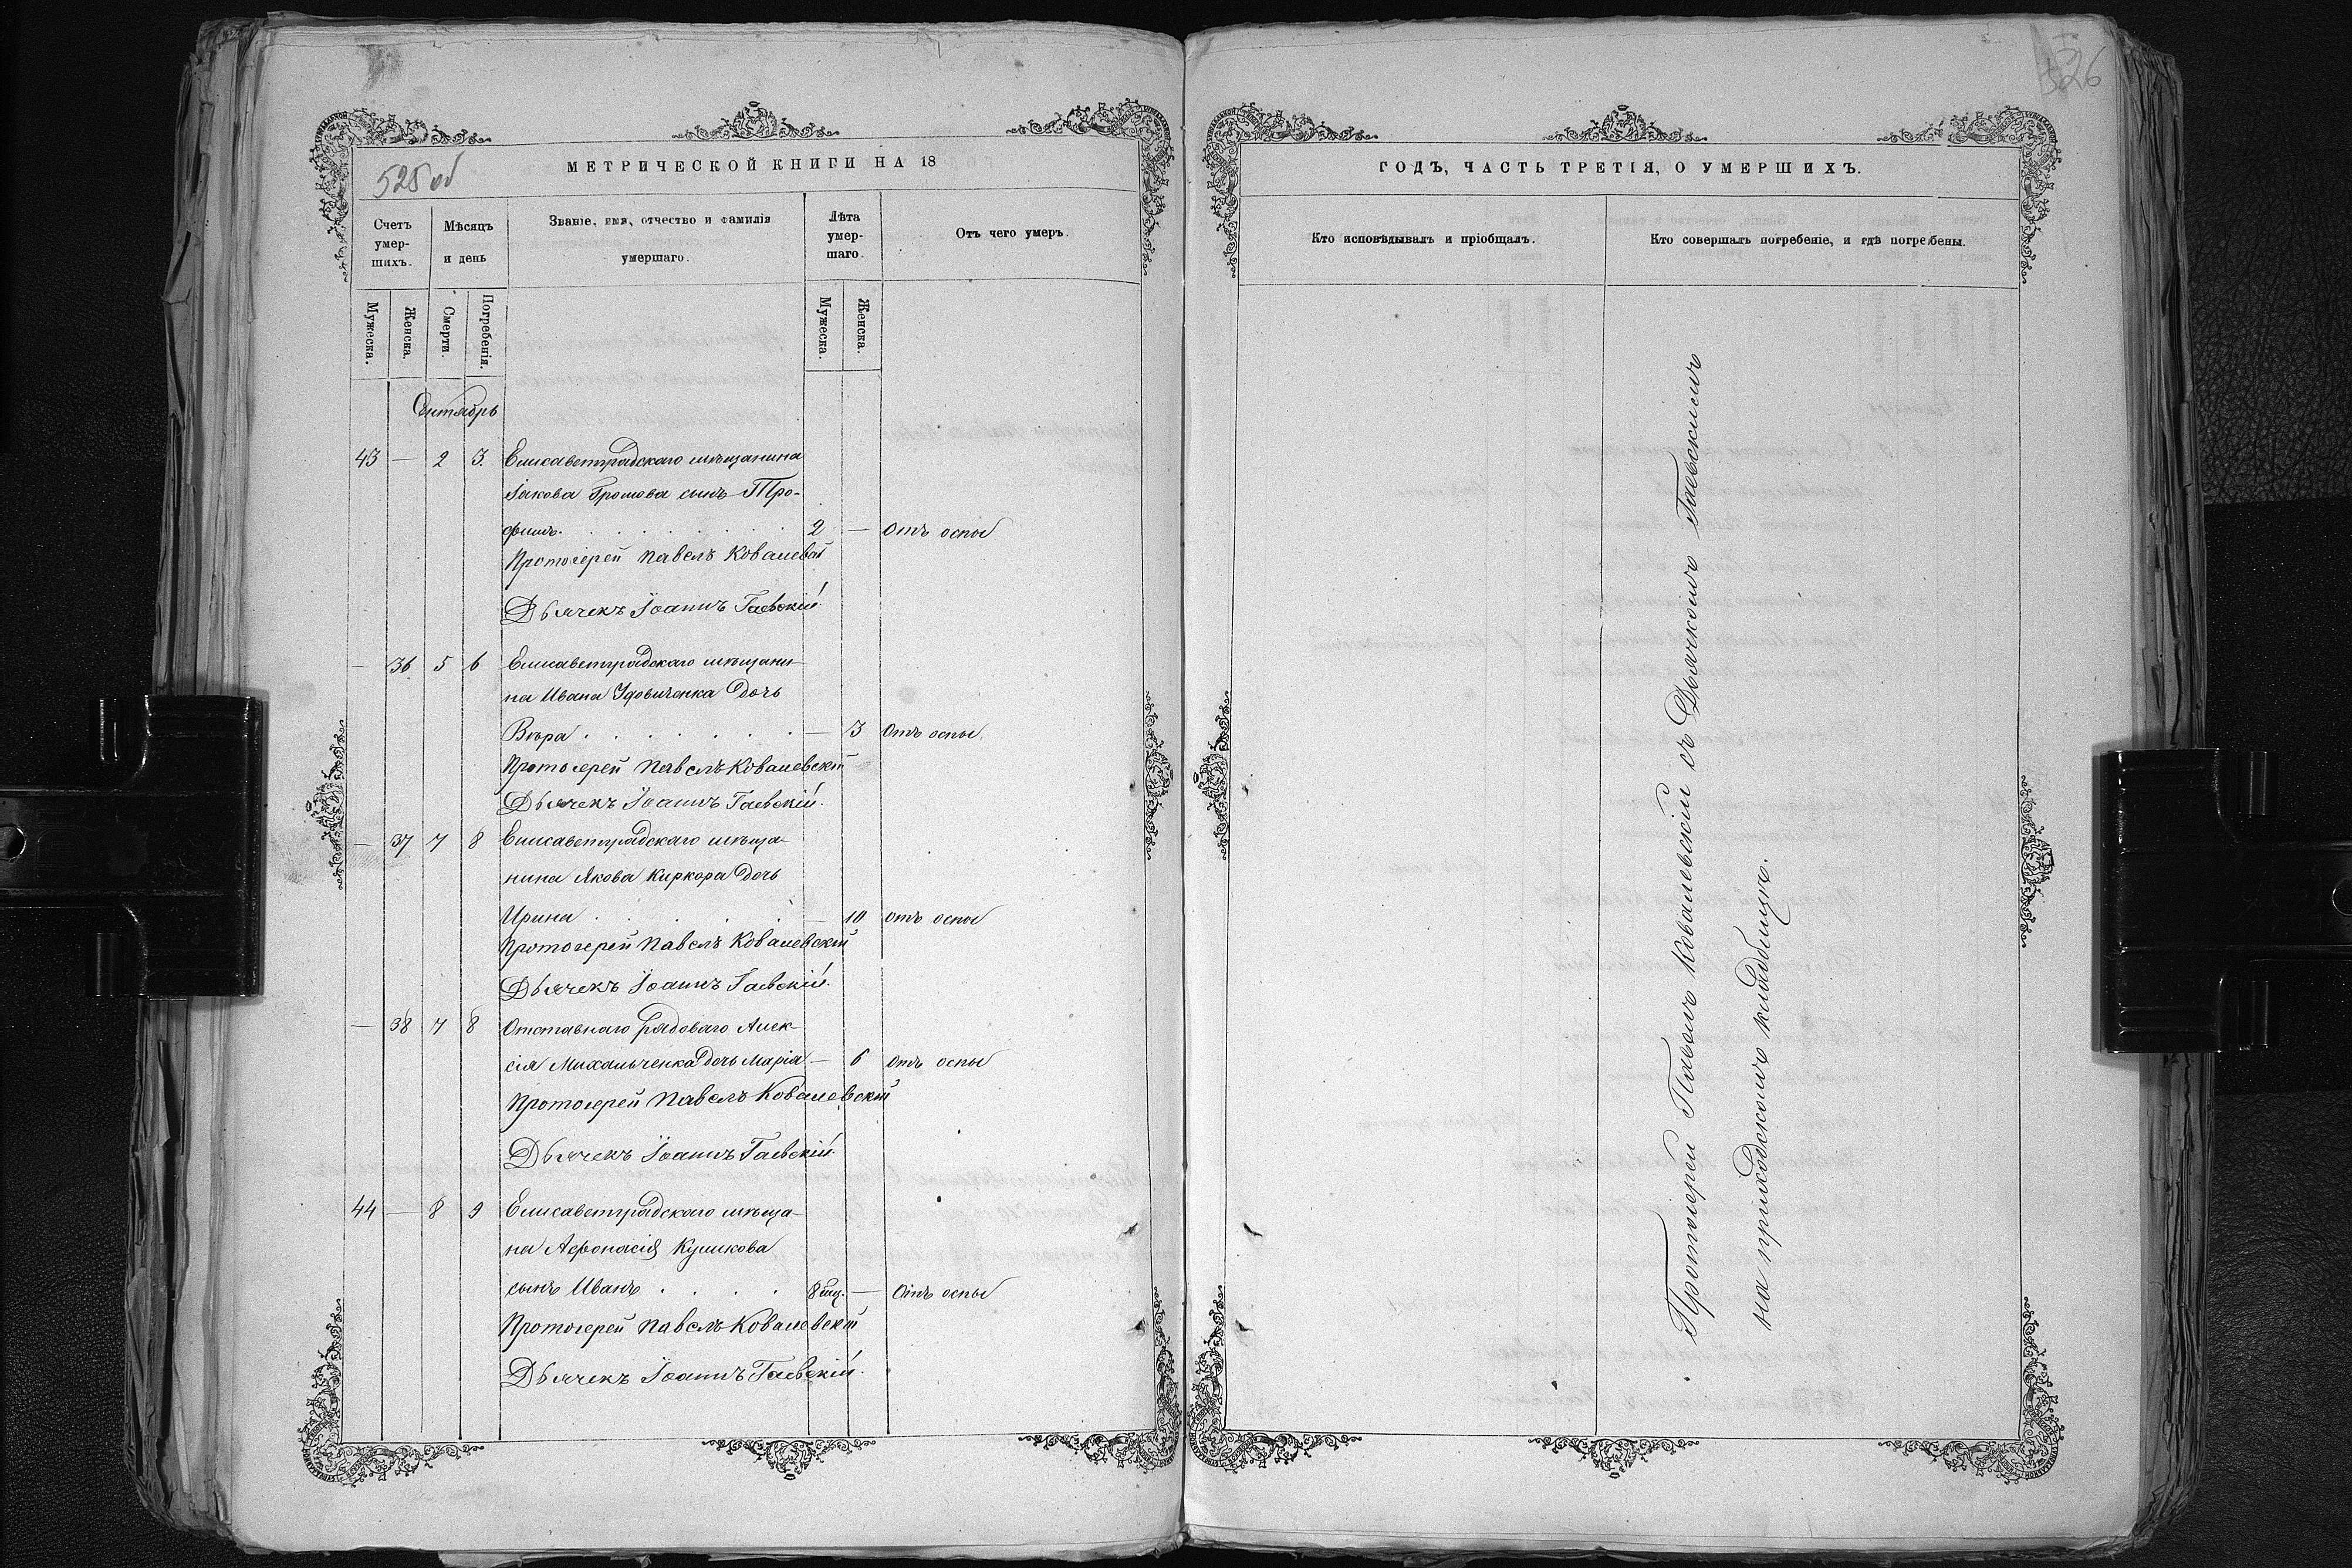 526
525 об
МЕТРИЧЕСКОЙ КНИГИ НА 18
ГОДЪ, ЧАСТЬ ТРЕТІЯ, О УМЕРШИХЪ.
Счетъ умер-шихъ.
Мѣсяцъ и день
Званіе, имя, отчество и фамилія умершаго.
Лѣта умер-шаго.
Отъ чего умеръ.
Кто исповѣдывалъ и пріобщалъ.
Кто совершалъ погребеніе, и гдѣ погребены.
Мужеска.
Женска.
Смерти.
Погребенія.
Мужеска.
Женска.
Сентябрь
43 — 2 3. Елисаветградскаго мѣщанина
Іакова Громова сынъ Тро-
фимъ. 2 — отъ оспы
Протоіерей Павелъ Ковалевскій
Дьячекъ Іоаннъ Гаевскій.
— 36 5 6 Елисаветградскаго мѣщани-
на Ивана Удовиченка дочь
Вѣра — 3 отъ оспы
Протоіерей Павелъ Ковалевскій
Дьячекъ Іоаннъ Гаевскій.
— 37 7 8 Елисаветградскаго мѣща-
нина Якова Киркора дочь
Ирина — 10 отъ оспы
Протоіерей Павелъ Ковалевскій
Дьячекъ Іоаннъ Гаевскій.
— 38 7 8 Отставнаго рядоваго Алек-
сія Михальченка дочь Марія — 6 отъ оспы
Протоіерей Павелъ Ковалевскій
Дьячекъ Іоаннъ Гаевскій.
44 — 8 9 Елисаветградскаго мѣща-
на Афонасія Кушкова
сынъ Иванъ 8 мц. — Отъ оспы
Протоіерей Павелъ Ковалевскій
Дьячекъ Іоаннъ Гаевскій.
Протоіерей Павелъ Ковалевскій съ Дьячкомъ Гаевскимъ
на приходскомъ кладбищѣ.